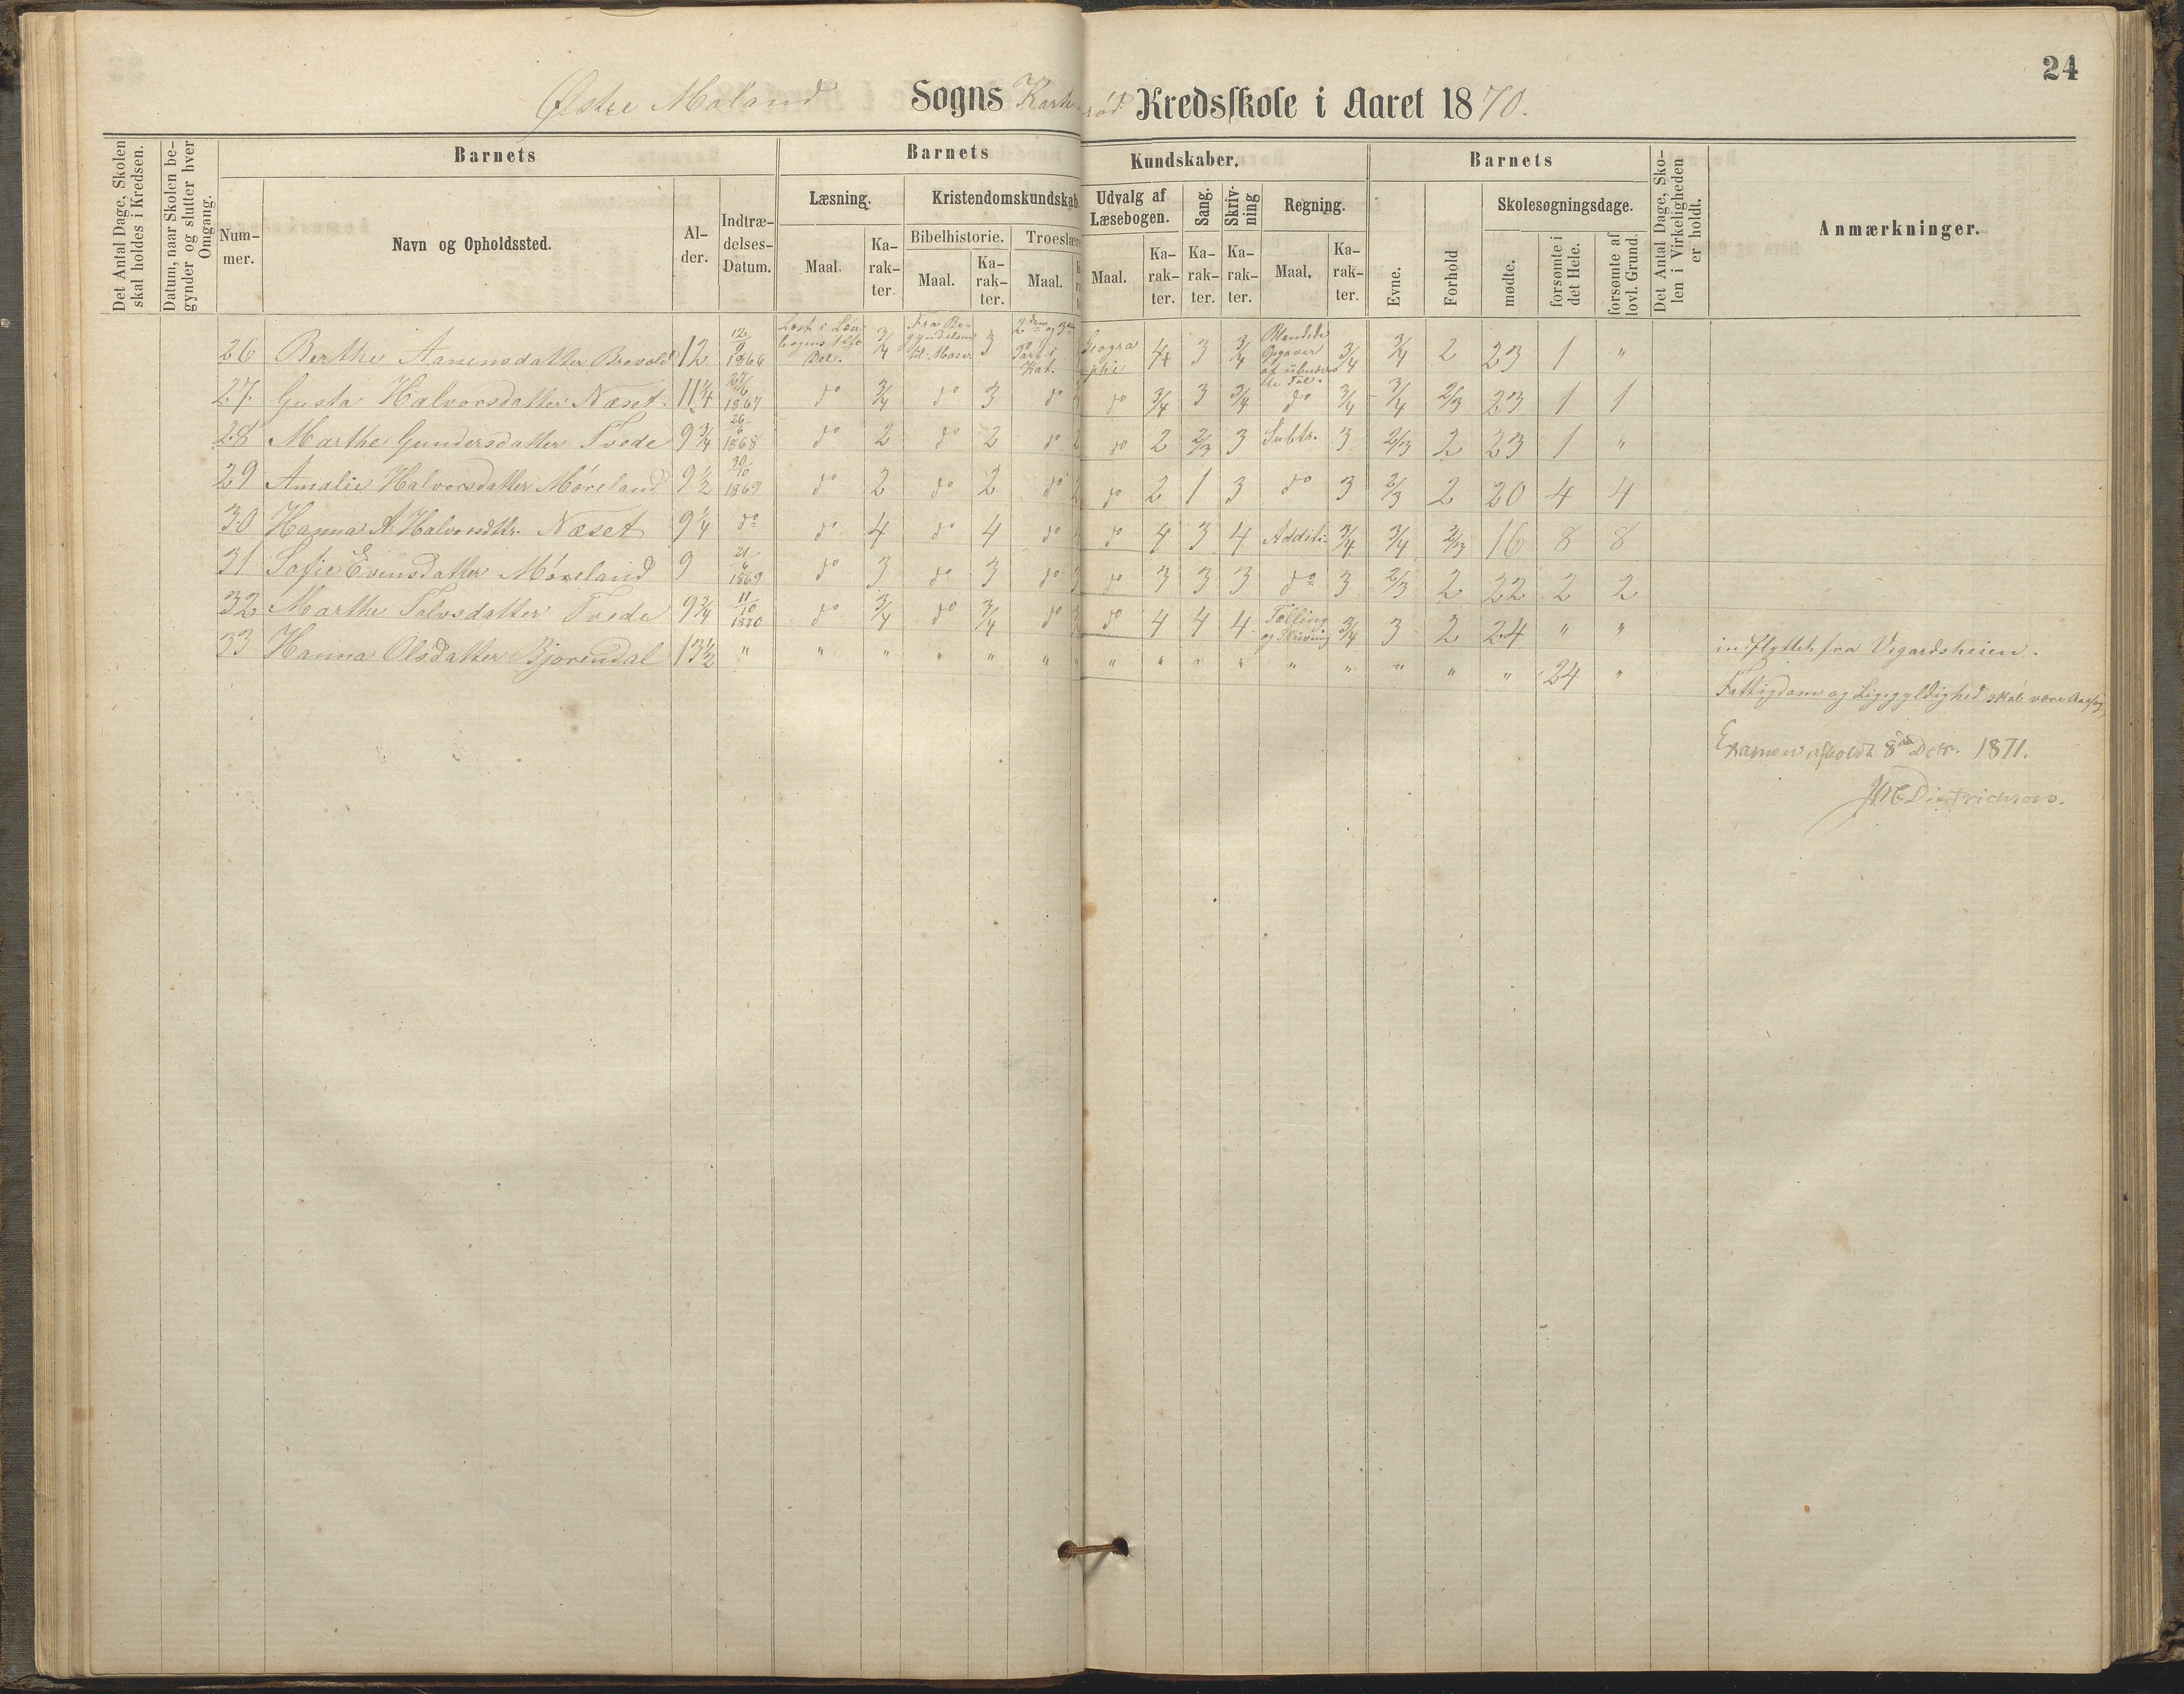 24
Østre Moland Sogns Kredsskole i Aaret 1870.
Det Antal Dage, Skolen skal holdes i Kredsen.
Datum, naar Skolen begynder og slutter hver Omgang.
Barnets
Barnets
Kundskaber.
Barnets
Det Antal Dage, Skolen i Virkeligheden er holdt.
Anmærkninger.
Nummer.
Navn og Opholdssted.
Alder.
Indtrædelses-Datum.
Læsning.
Kristendomskundskab.
Udvalg af Læsebogen.
Sang.
Skrivning
Regning.
Evne.
Forhold
Skolesøgningsdage.
Bibelhistorie.
Troeslær
Maal. Karakter. Maal. Karakter. Maal. Maal. Karakter. Karakter. Karakter. Maal. Karakter.
mødte. forsømte i det Hele. forsømte af lovl. Grund.
26 Berthe Aanensdatter 12 12/9 1866 3/4 3 2den og 3die Part i Kat. Geographi 4+ 3 3/4 Blandede Opgaver 3/4 3/4 2 23 1 "
27 Gusta Halvorsdatter Næset 11 1/4 1867 do 3/4 do 3 do do 3/4 3 3/4 do 3/4 3/4 2/3 23 1 1
28 Marthe Gundersdatter Tvede 9 3/4 26/6 1868 do 2 do 2 do 2 do 2 2/3 3 Subtr. 3 2/3 2 23 1 "
29 Amalie Halvorsdatter Møreland 9 1/2 30/10 1869 do 2 do 2 do 2 do 2 1 3 do 3 2/3 2 20 4 4
30 Hanna A. Halvorsdttr. Næset 9 1/4 do do 4 do 4 do 4 do 4 3 4 Additi: 3/4 3/4 2/3 16 8 8
31 Sofie Evensdatter Møreland 9 21/6 1869 do 3 do 3 do 3 do 3 3 3 do 3 2/3 2 22 2 2
32 Marthe Talvsdatter Tvede 9 3/4 11/10 1870 do 3/4 do 3/4 do do 4 4 4 Tælling og Skrivning 3/4 3 2 24 " " indflyttet fra Vegardsheien.
33 Hanna Olsdatter Bjorendal 13 1/2 " " " " " " " " " " " " " " " " " 24 " Fattigdom og Ligegyldighed skal være
Examen afholdt 8de Dcbr. 1871.